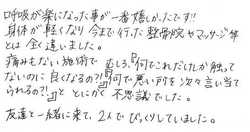 呼吸が楽になった事が一番嬉しかったです!!
身体が軽くなり 今まで行った整骨院やマッサージ等
とは 全く違いました。
痛みもない施術で むしろ、『何でこれだけしか触って
ないのに 良くなるの?!』『何で悪い所を次々言い当て
られるの?!』と とにかく 不思議でした。
友達と一緒に来て、2人で びっくりしていました。